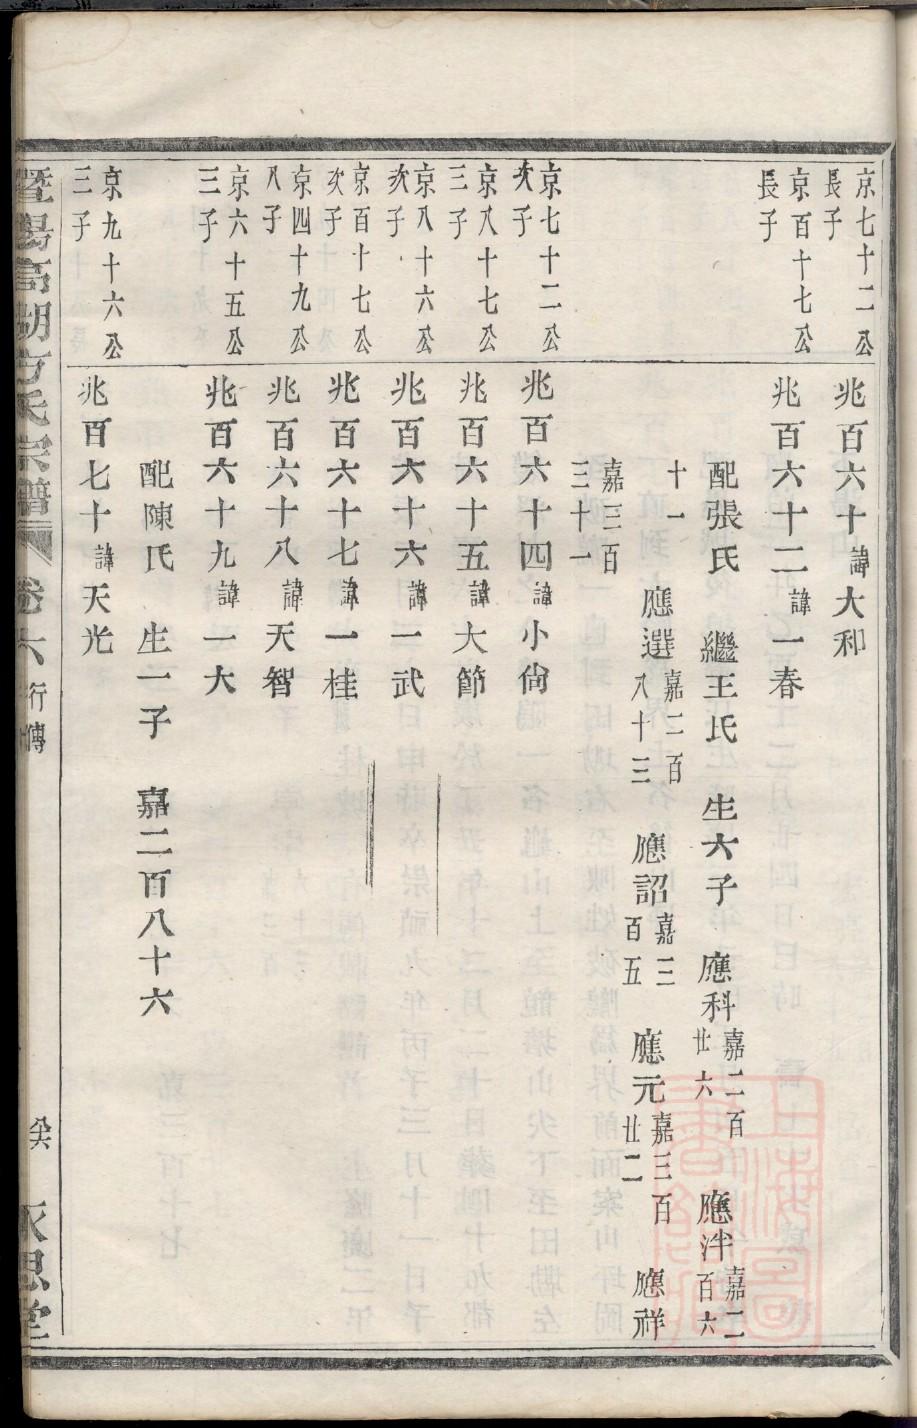 京七十二公
長子
兆百六十諱大和
京百十七公
長子
兆百六十二諱一春
配張氏 繼王氏 生六子 應科嘉二百廿六 應泮嘉二百六
十一 應選嘉二百八十三 應詔嘉三百五 應元嘉三百廿二 應祥
嘉三百三十一
京七十二公
次子
兆百六十四諱小尚
京八十七公
三子
兆百六十五諱大節
京八十六公
次子
兆百六十六諱一武
京百十七公
次子
兆百六十七諱一桂
京四十九公
八子
兆百六十八諱天智
京六十五公
三子
兆百六十九諱一大
配陳氏 生一子 嘉二百八十六
京九十六公
三子
兆百七十諱天光
暨陽高湖方氏宗譜 卷六 行傳 永思堂